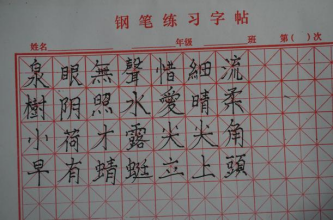 钢笔练习字帖
姓名 年级 班 第( )次
泉眼無聲惜細流
樹阴照水愛晴柔
小荷才露尖尖角
早有蜻蜓立上頭